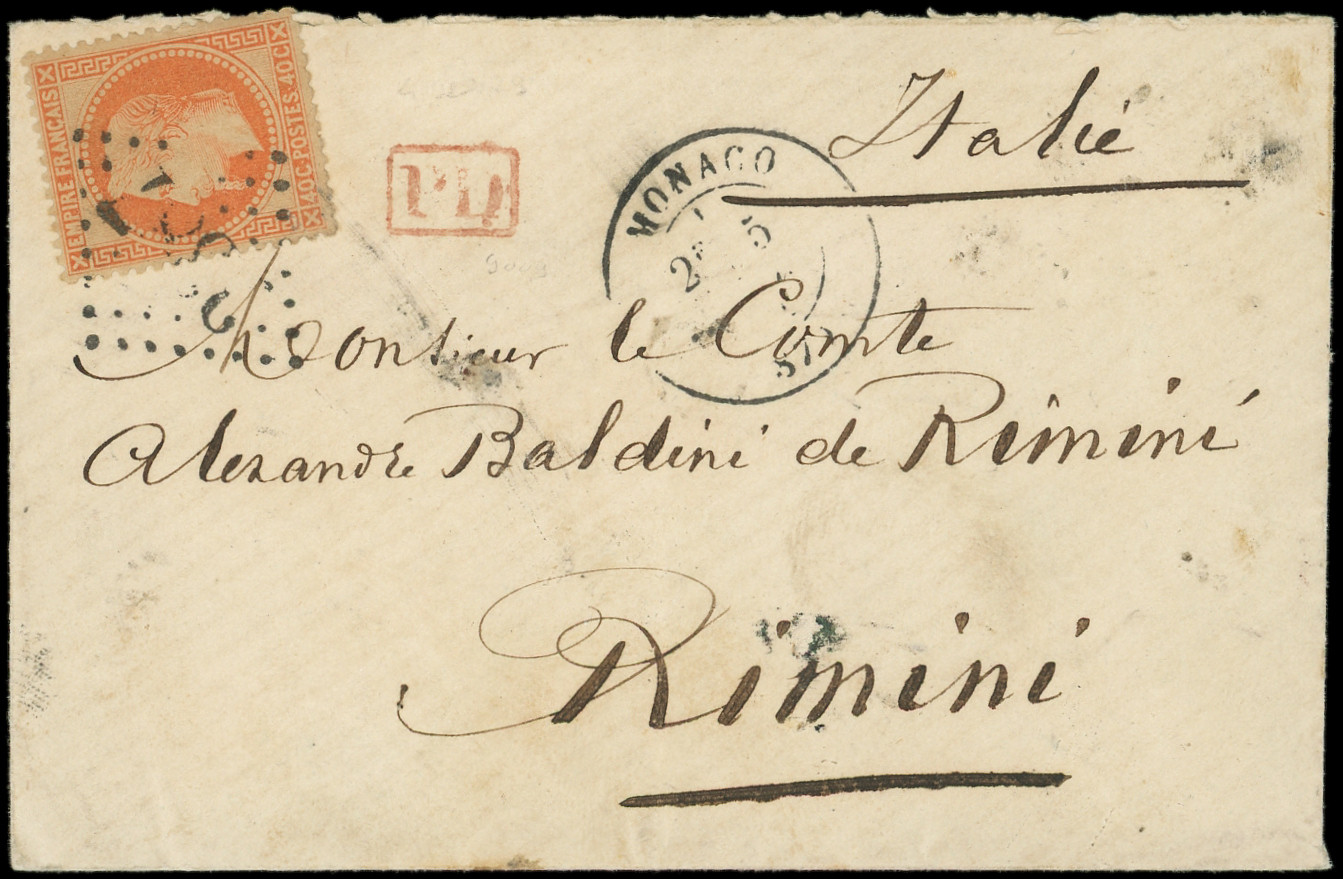 EMPIRE FRANÇAIS
40C. POSTES. 40C
PD
MONACO
Italie
Monsieur le Comte
Alexandre Baldini de Rimini
Rimini